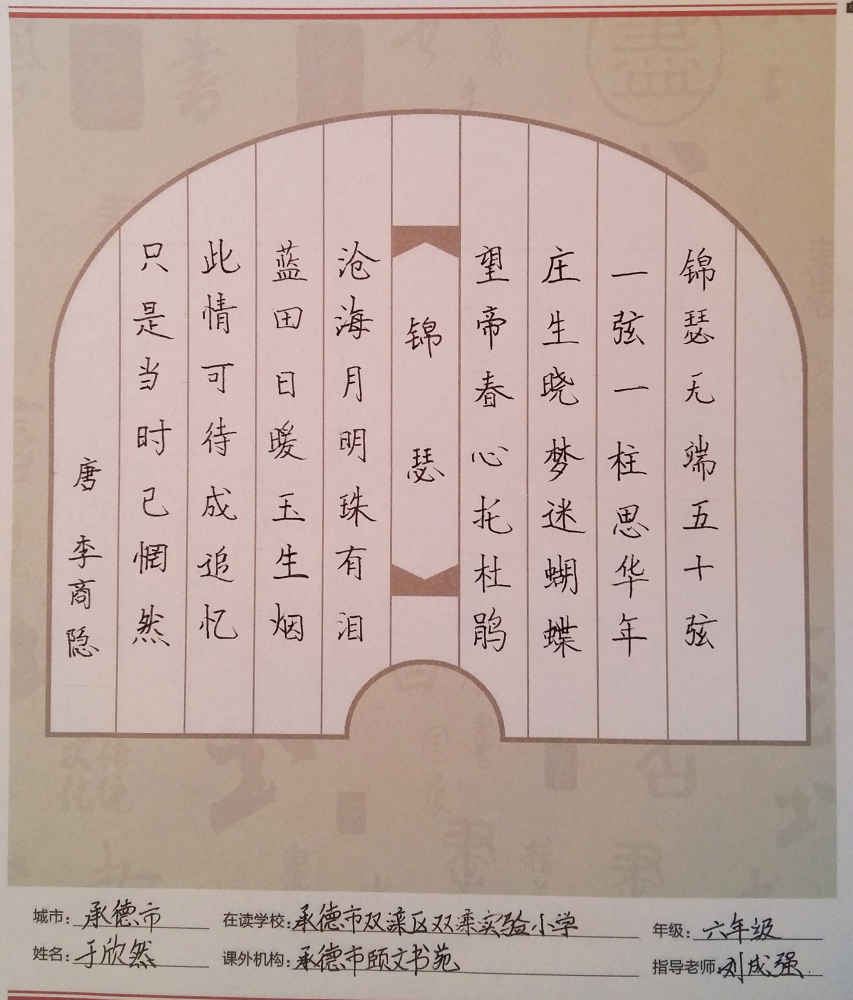 锦瑟无端五十弦
一弦一柱思华年
庄生晓梦迷蝴蝶
望帝春心托杜鹃
锦瑟
沧海月明珠有泪
蓝田日暖玉生烟
此情可待成追忆
只是当时已惘然
唐 李商隐
城市：承德市 在读学校：承德市双滦区双滦实验小学 年级：六年级
姓名：于欣然 课外机构：承德市颐文书苑 指导老师：刘成强